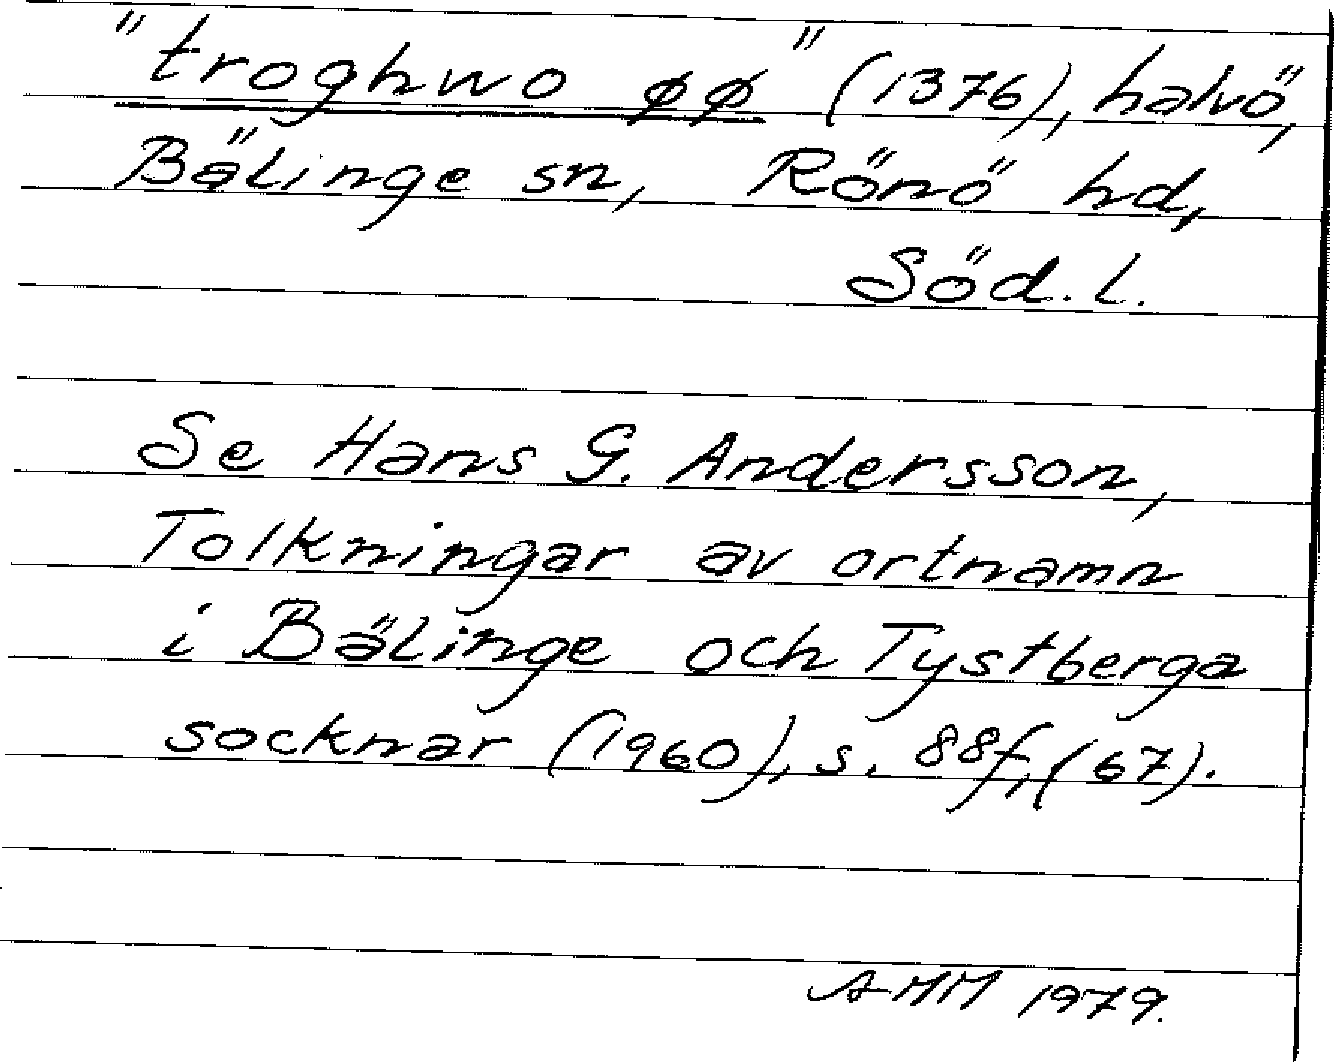 "troghwo øø" (1376), halvö,
Bälinge sn, Rönö hd,
Söd. l.
Se Hans G. Andersson,
Tolkningar av ortnamn
i Bälinge och Tystberga
socknar (1960), s. 88f, (67).
AMM 1979.